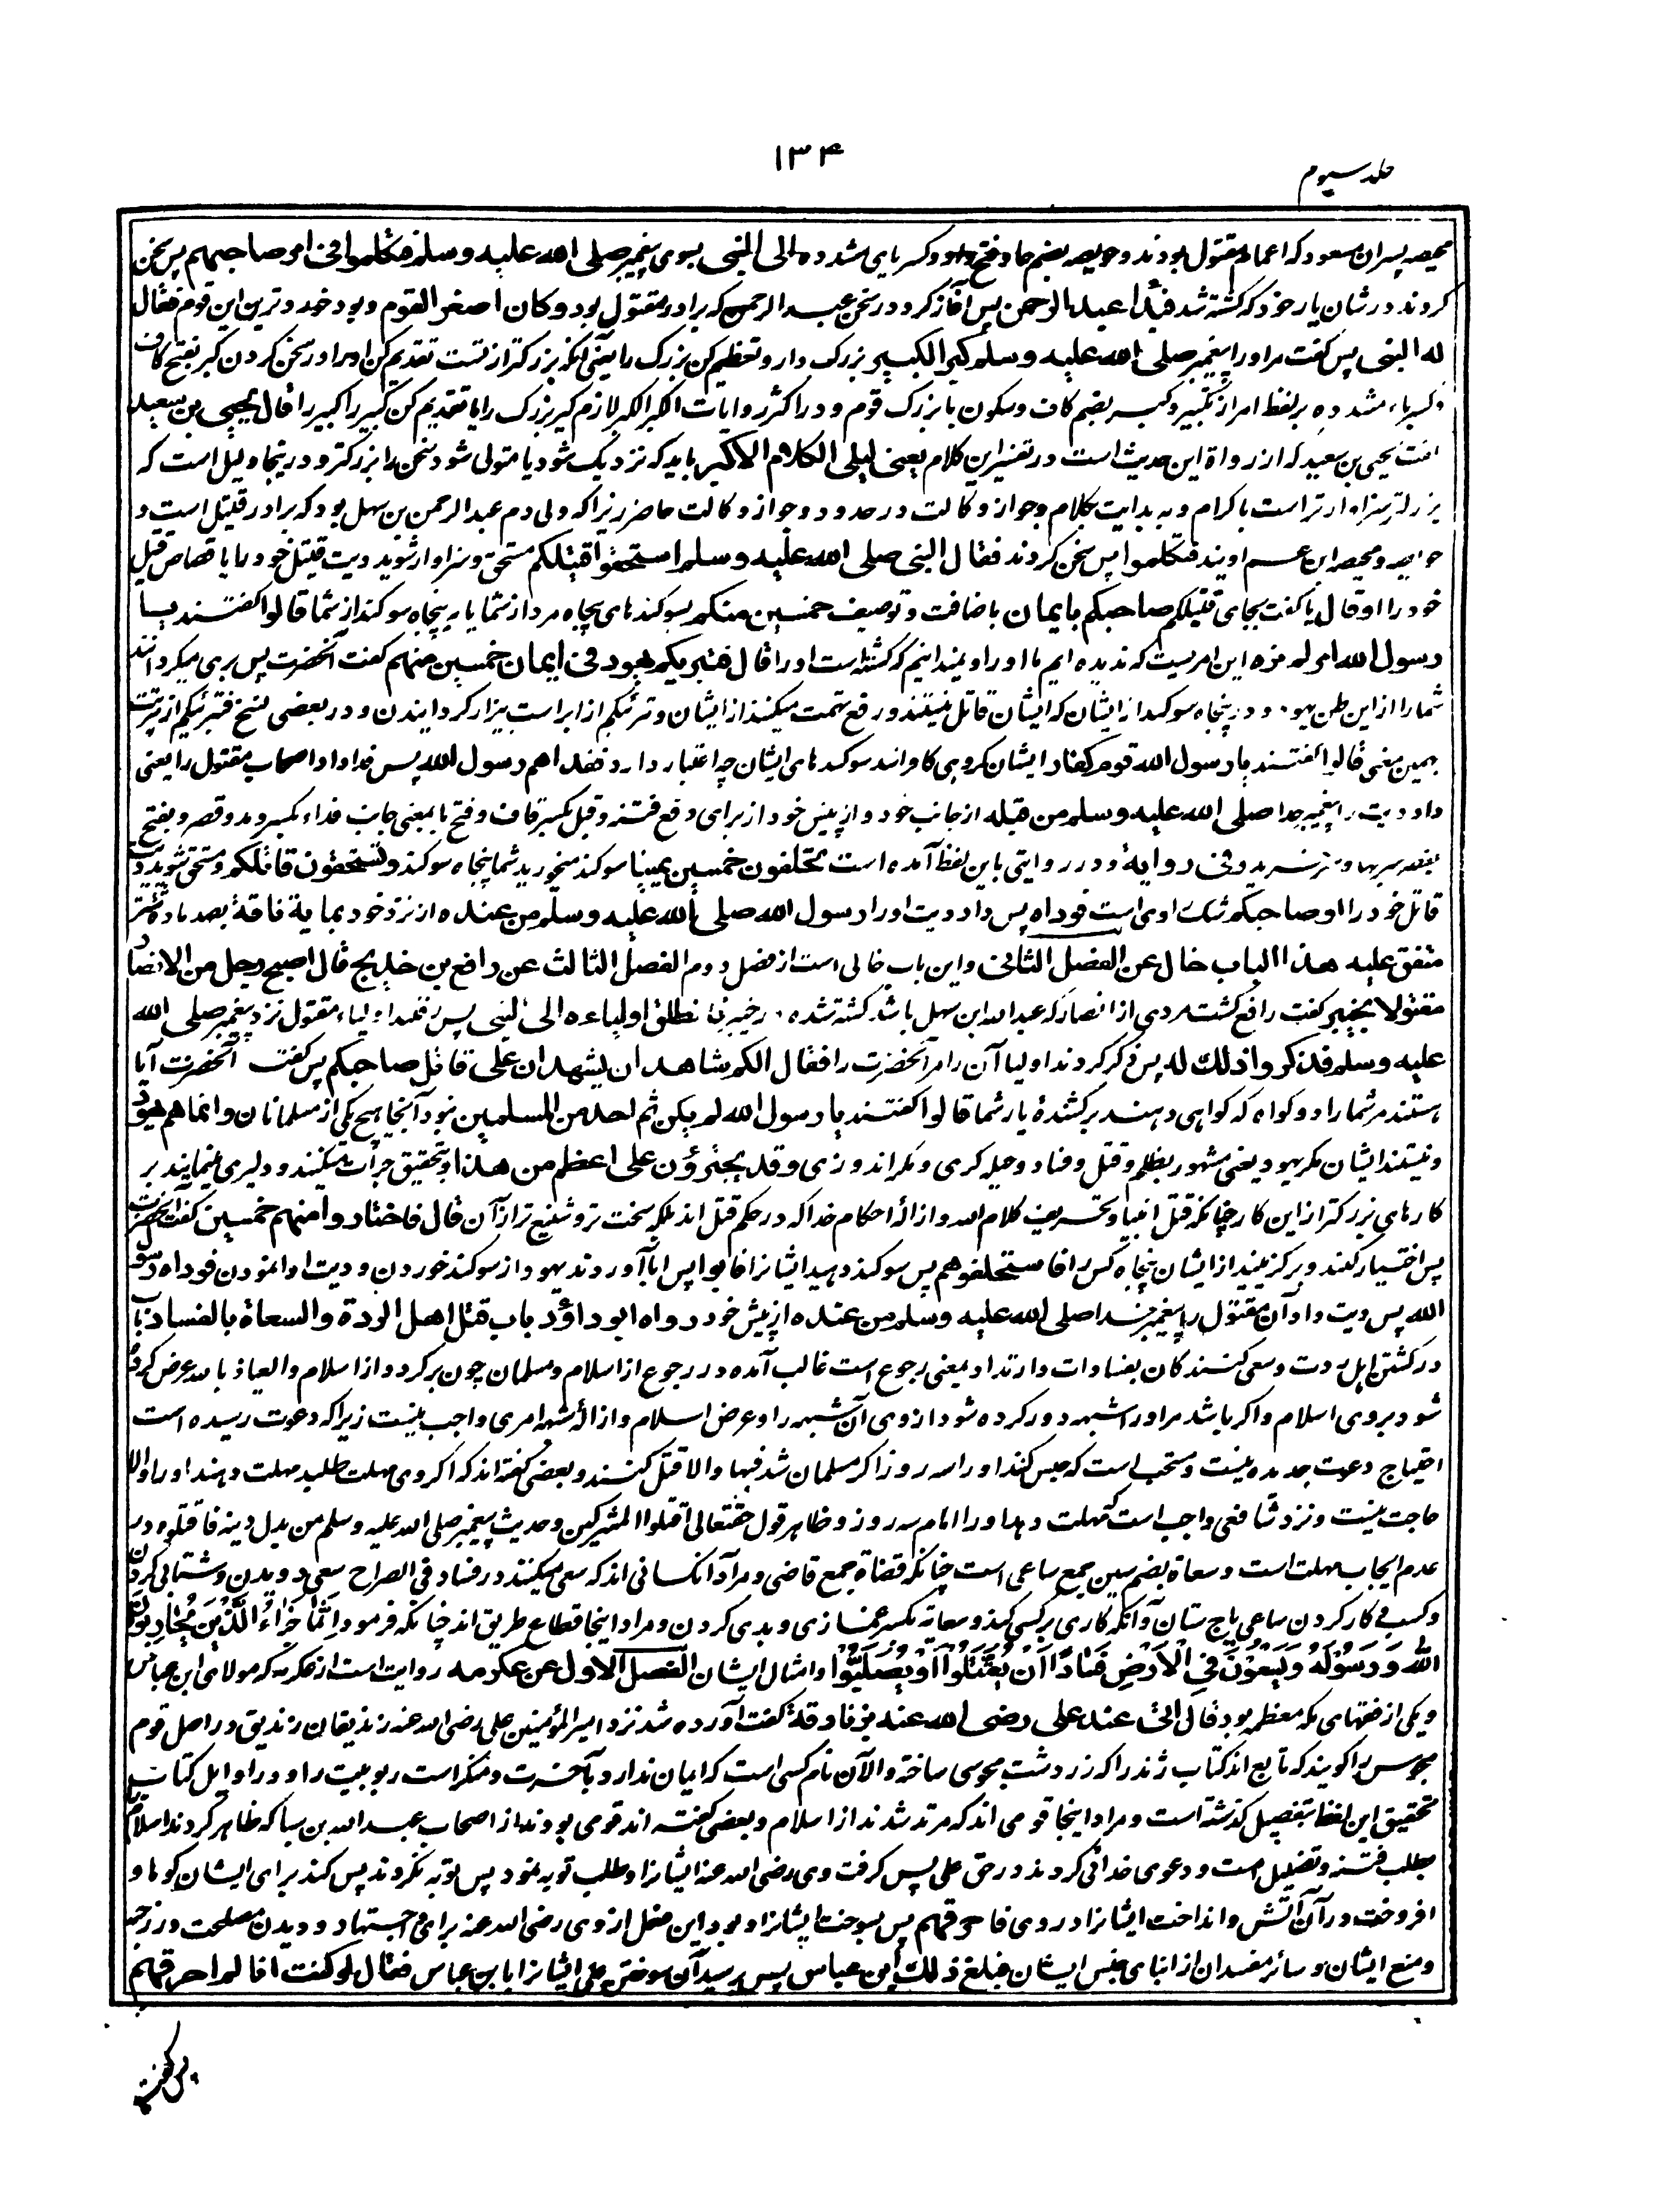 ۱۳۴
جلد سیوم
محیصه پسران مسعود که اعمام مقتول بودند و حویصه بضم حا و فتح واو و کسر یای مشدده الی النبی بسوی پیغمبر صلی الله علیه وسلم فتکلموا فی امر صاحبهم پس سخن
کردند در شان یار خود که کشته شد فبدأ عبد الرحمن پس آغاز کرد در سخن عبد الرحمن که برادر مقتول بود وکان اصغر القوم و بود خرد ترین این قوم فقال
له النبی پس گفت مر او را پیغمبر صلی الله علیه وسلم کبر الکبیر بزرک دار و تعظیم کن بزرک را یعنی آنکه بزرکتر از تست تقدیم کن او را در سخن کردن کبر بفتح کاف
و کسر باء مشدده بر لفظ امر از تکبیر و کبر بضم کاف و سکون با بزرک قوم و در اکثر روایات الکبر الکبر لازم گیر بزرک را یا تقدیم کن کبیر را کبیر را قال یحیی بن سعید
گفت یحیی بن سعید که از رواة این حدیث است در تفسیر این کلام یعنی لیلی الکلام الاکبر باید که نزدیک شود یا متولی شود سخن را بزرکتر و در ینجا دلیل است که
بزرکتر سزاوارتر است باکرام و به بدایت کلام و جواز وکالت در حدود و جواز وکالت حاضر زیرا که ولی دم عبد الرحمن بن سهل بود که برادر قتیل است و
حویصه و محیصه ابن عم اویند فتکلموا پس سخن کردند فقال النبی صلی الله علیه وسلم استحقوا قتیلکم مستحق و سزاوار شوید دیت قتیل خود را یا قصاص قتیل
خود را او قال یا گفت بجای قتیلکم صاحبکم بایمان باضافت و توصیف خمسین منکم بسوکندهای پنجاه مرد از شما یا به پنجاه سوکند از شما قالوا گفتند یا
رسول الله امر لم نره این امریست که ندیده ایم ما او را و نمیدانیم که کشته است او را قال فتبریکم یهود فی ایمان خمسین منهم گفت آنحضرت پس بری میکردانند
شما را از این ظن یهود در پنجاه سوکند از ایشان که ایشان قاتل نیستند و رفع تهمت میکنند از ایشان و تبرئکم از ابراست بیزار کردانیدن و در بعضی نسخ فتبرئکم از تبرئت
بهمین معنی قالوا گفتند یا رسول الله قوم کفار ایشان کروهی کافرانند سوکندهای ایشان چه اعتبار دارد ففداهم رسول الله پس فدا داد اصحاب مقتول را یعنی
داد دیت را پیغمبر خدا صلی الله علیه وسلم من قبله از جانب خود و از پیش خود از برای دفع فتنه و قبل بکسر قاف و فتح با بمعنی جانب فداء بکسر و مد و قصر و بفتح
و قصر سربها و وفی روایة و در روایتی باین لفظ آمده است تحلفون خمسین یمینا سوکند میخورید شما پنجاه سوکند وتستحقون قاتلکم و مستحق شوید دیت
قاتل خود را او صاحبکم شک راوی است فوداه پس داد دیت او را رسول الله صلی الله علیه وسلم من عنده از نزد خود بمایة ناقة بصد ماده شتر
متفق علیه هذا الباب خال عن الفصل الثانی و این باب خالی است از فصل دوم الفصل الثالث عن رافع بن خدیج قال اصبح رجل من الانصار
مقتولا بخیبر گفت رافع کشت مردی از انصار که عبد الله ابن سهل باشد کشته شده در خیبر فانطلق اولیاءه الی النبی پس رفتند اولیاء مقتول نزد پیغمبر صلی الله
علیه وسلم فذکروا ذلک له پس ذکر کردند اولیا آن را مر آنحضرت را فقال الکم شاهدان یشهدان علی قاتل صاحبکم پس گفت آنحضرت آیا
هستند مر شما را دو گواه که گواهی دهند بر کشندۀ یار شما قالوا گفتند یا رسول الله لم یکن ثم احد من المسلمین نبود آنجا هیچ یکی از مسلمانان وانما هم یهود
و نیستند ایشان مگر یهود یعنی مشهور بظلم و قتل و فساد و حیله گری و مکر اندوزی وقد یجترؤن علی اعظم من هذا و بتحقیق جرأت میکنند و دلیری مینمایند بر
کارهای بزرکتر از این کار چنانکه قتل انبیا و تحریف کلام الله و ازالۀ احکام خدا که در حکم قتل اند بلکه سخت تر و شنیع تر از آن قال فاختاروا منهم خمسین گفت آنحضرت
پس اختیار کنید و برگزینید از ایشان پنجاه کس را فاستحلفوهم پس سوکند دهید ایشانرا فابوا پس ابا آوردند یهود از سوکند خوردن و دیت ادا نمودن فوداه رسول
الله پس دیت داد آن مقتول را پیغمبر خدا صلی الله علیه وسلم من عنده از پیش خود رواه ابو داؤد باب قتل اهل الردة والسعاة بالفساد باب
در کشتن اهل ردت و سعی کنندکان بفسادات و ارتداد بمعنی رجوع است غالب آمده در رجوع از اسلام و مسلمان چون برگردد از اسلام والعیاذ بالله عرض کرده
شود بروی اسلام و اگر باشد مر او را شبهه دور کرده شود از وی آن شبهه را و عرض اسلام و ازالۀ شبهه امری واجب نیست زیرا که دعوت رسیده است
احتیاج دعوت جدیده نیست و مستحب است که حبس کنند او را سه روز اگر مسلمان شد فبها و الا قتل کنند و بعضی گفته اند که اگر وی مهلت طلبد مهلت دهند او را و الا
حاجت نیست و نزد شافعی واجب است که مهلت دهد او را امام سه روز و ظاهر قول حقتعالی اقتلوا المشرکین و حدیث پیغمبر صلی الله علیه وسلم من بدل دینه فاقتلوه در
عدم ایجاب مهلت است و سعاة بضم سین جمع ساعی است چنانکه قضاة جمع قاضی و مراد آنکسانی اند که سعی میکنند در فساد فی الصراح سعی دویدن و شتابی کردن
و کسب و کار کردن ساعی باج ستان و آنکه کاری بر کسی کند و سعایة بکسر غمازی و بدی کردن و مراد اینجا قطاع طریق اند چنانکه فرمود اِنَّمَا جَزَاءُ الَّذِینَ یُحَارِبُونَ
اللّٰهَ وَرَسُولَهُ وَیَسْعَوْنَ فِی الْاَرْضِ فَسَادًا اَنْ یُقَتَّلُوا اَوْ یُصَلَّبُوا و امثال ایشان الفصل الاول عن عکرمه روایت است از عکرمه که مولای ابن عباس
و یکی از فقهای مکه معظمه بود قال اتی عند علی رضی الله عنه بزنادقة گفت آورده شد نزد امیر المؤمنین علی رضی الله عنه زندیقان زندیق در اصل قوم
مجوس را گویند که تابع اند کتاب ژند را که زردشت مجوسی ساخته و الآن نام کسی است که ایمان ندارد بآخرت و منکر است ربوبیت را و در اوایل کتاب
تحقیق این لفظ بتفصیل گذشته است و مراد اینجا قومی اند که مرتد شدند از اسلام و بعضی گفته اند قومی بودند از اصحاب عبد الله بن سبا که ظاهر کردند اسلام را
بطلب فتنه و تضلیل امت و دعوی خدائی کردند در حق علی پس گرفت وی رضی الله عنه ایشانرا و طلب توبه نمود پس توبه نکردند پس کند برای ایشان گوها و
افروخت در آن آتش و انداخت ایشانرا در وی فاحرقهم پس بسوخت ایشانرا و بود این فعل از وی رضی الله عنه برای و اجتهاد و دیدن مصلحت در زجر
و منع ایشان و سائر مفسدان از ابنای جنس ایشان فبلغ ذلک ابن عباس پس برسید آن سوختن علی ایشانرا بابن عباس فقال لو کنت انا لم احرقهم
پس گفت